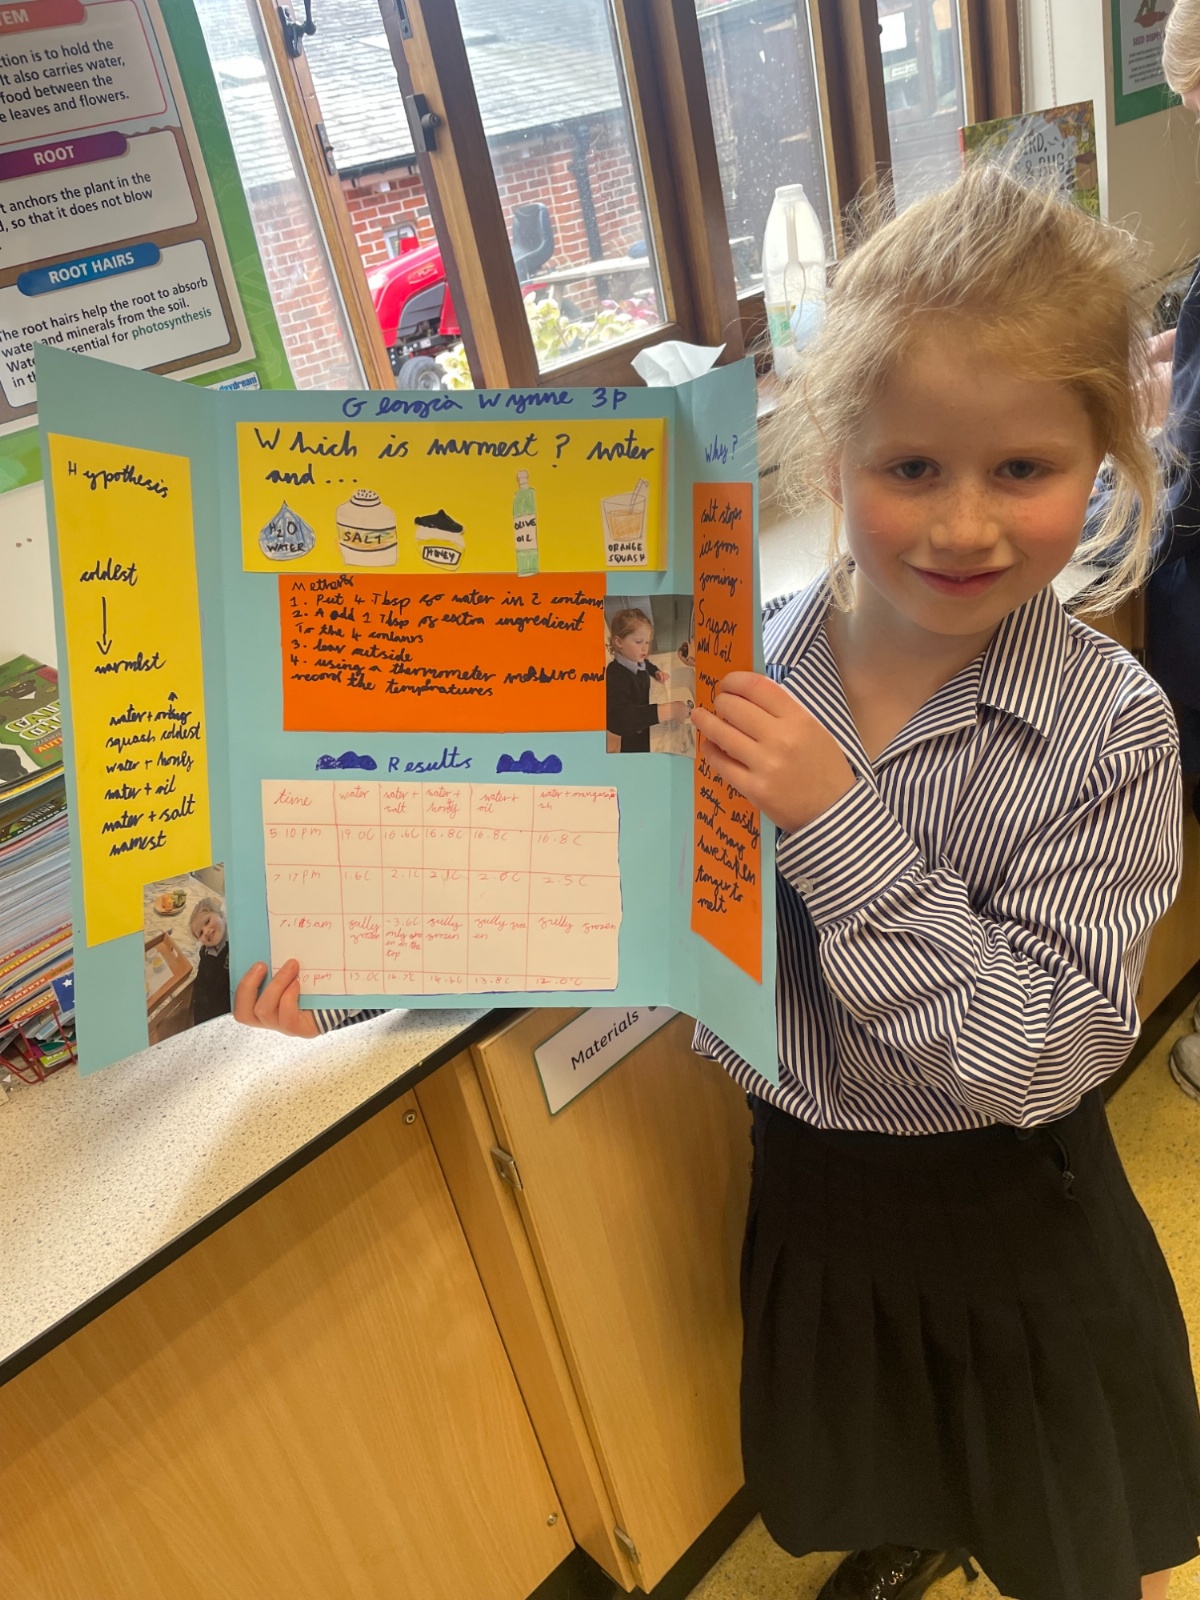 TEM
ction is to hold the
It also carries water,
food between the
e leaves and flowers.
ROOT
t anchors the plant in the
d, so that it does not blow
ROOT HAIRS
The root hairs help the root to absorb
water and minerals from the soil.
Wate ssential for photosynthesis
in th
daydream
Georgia Wynne 3P
Which is warmest? water
and ...
H2O
WATER
SALT
HONEY
OLIVE
OIL
ORANGE
SQUASH
Hypothesis
coldest
warmest
water + orange
squash coldest
water + honey
water + oil
water + salt
warmest
Method
1. Put 4 Tbsp of water in 2 contaners
2. A add 1 Tbsp of extra ingredient
To the 4 contaners
3. leav outside
4. using a thermometer measure and
record the tempratures
Results
time water water + salt water + honey water + oil water + orange
5.10 pm 19.0C 16.6C 16.8C 16.8C 16.8C
7.17pm 1.6C 2.1C 2.0C 2.5C
am fully frozen -3.6C only in the top fully frozen fully frozen fully frozen
pm 13.0C 13.8C 12.0C
why?
salt stops
ice from
forming.
Sugar
and oil
may
easily
and may
have taken
longer to
melt
Materials